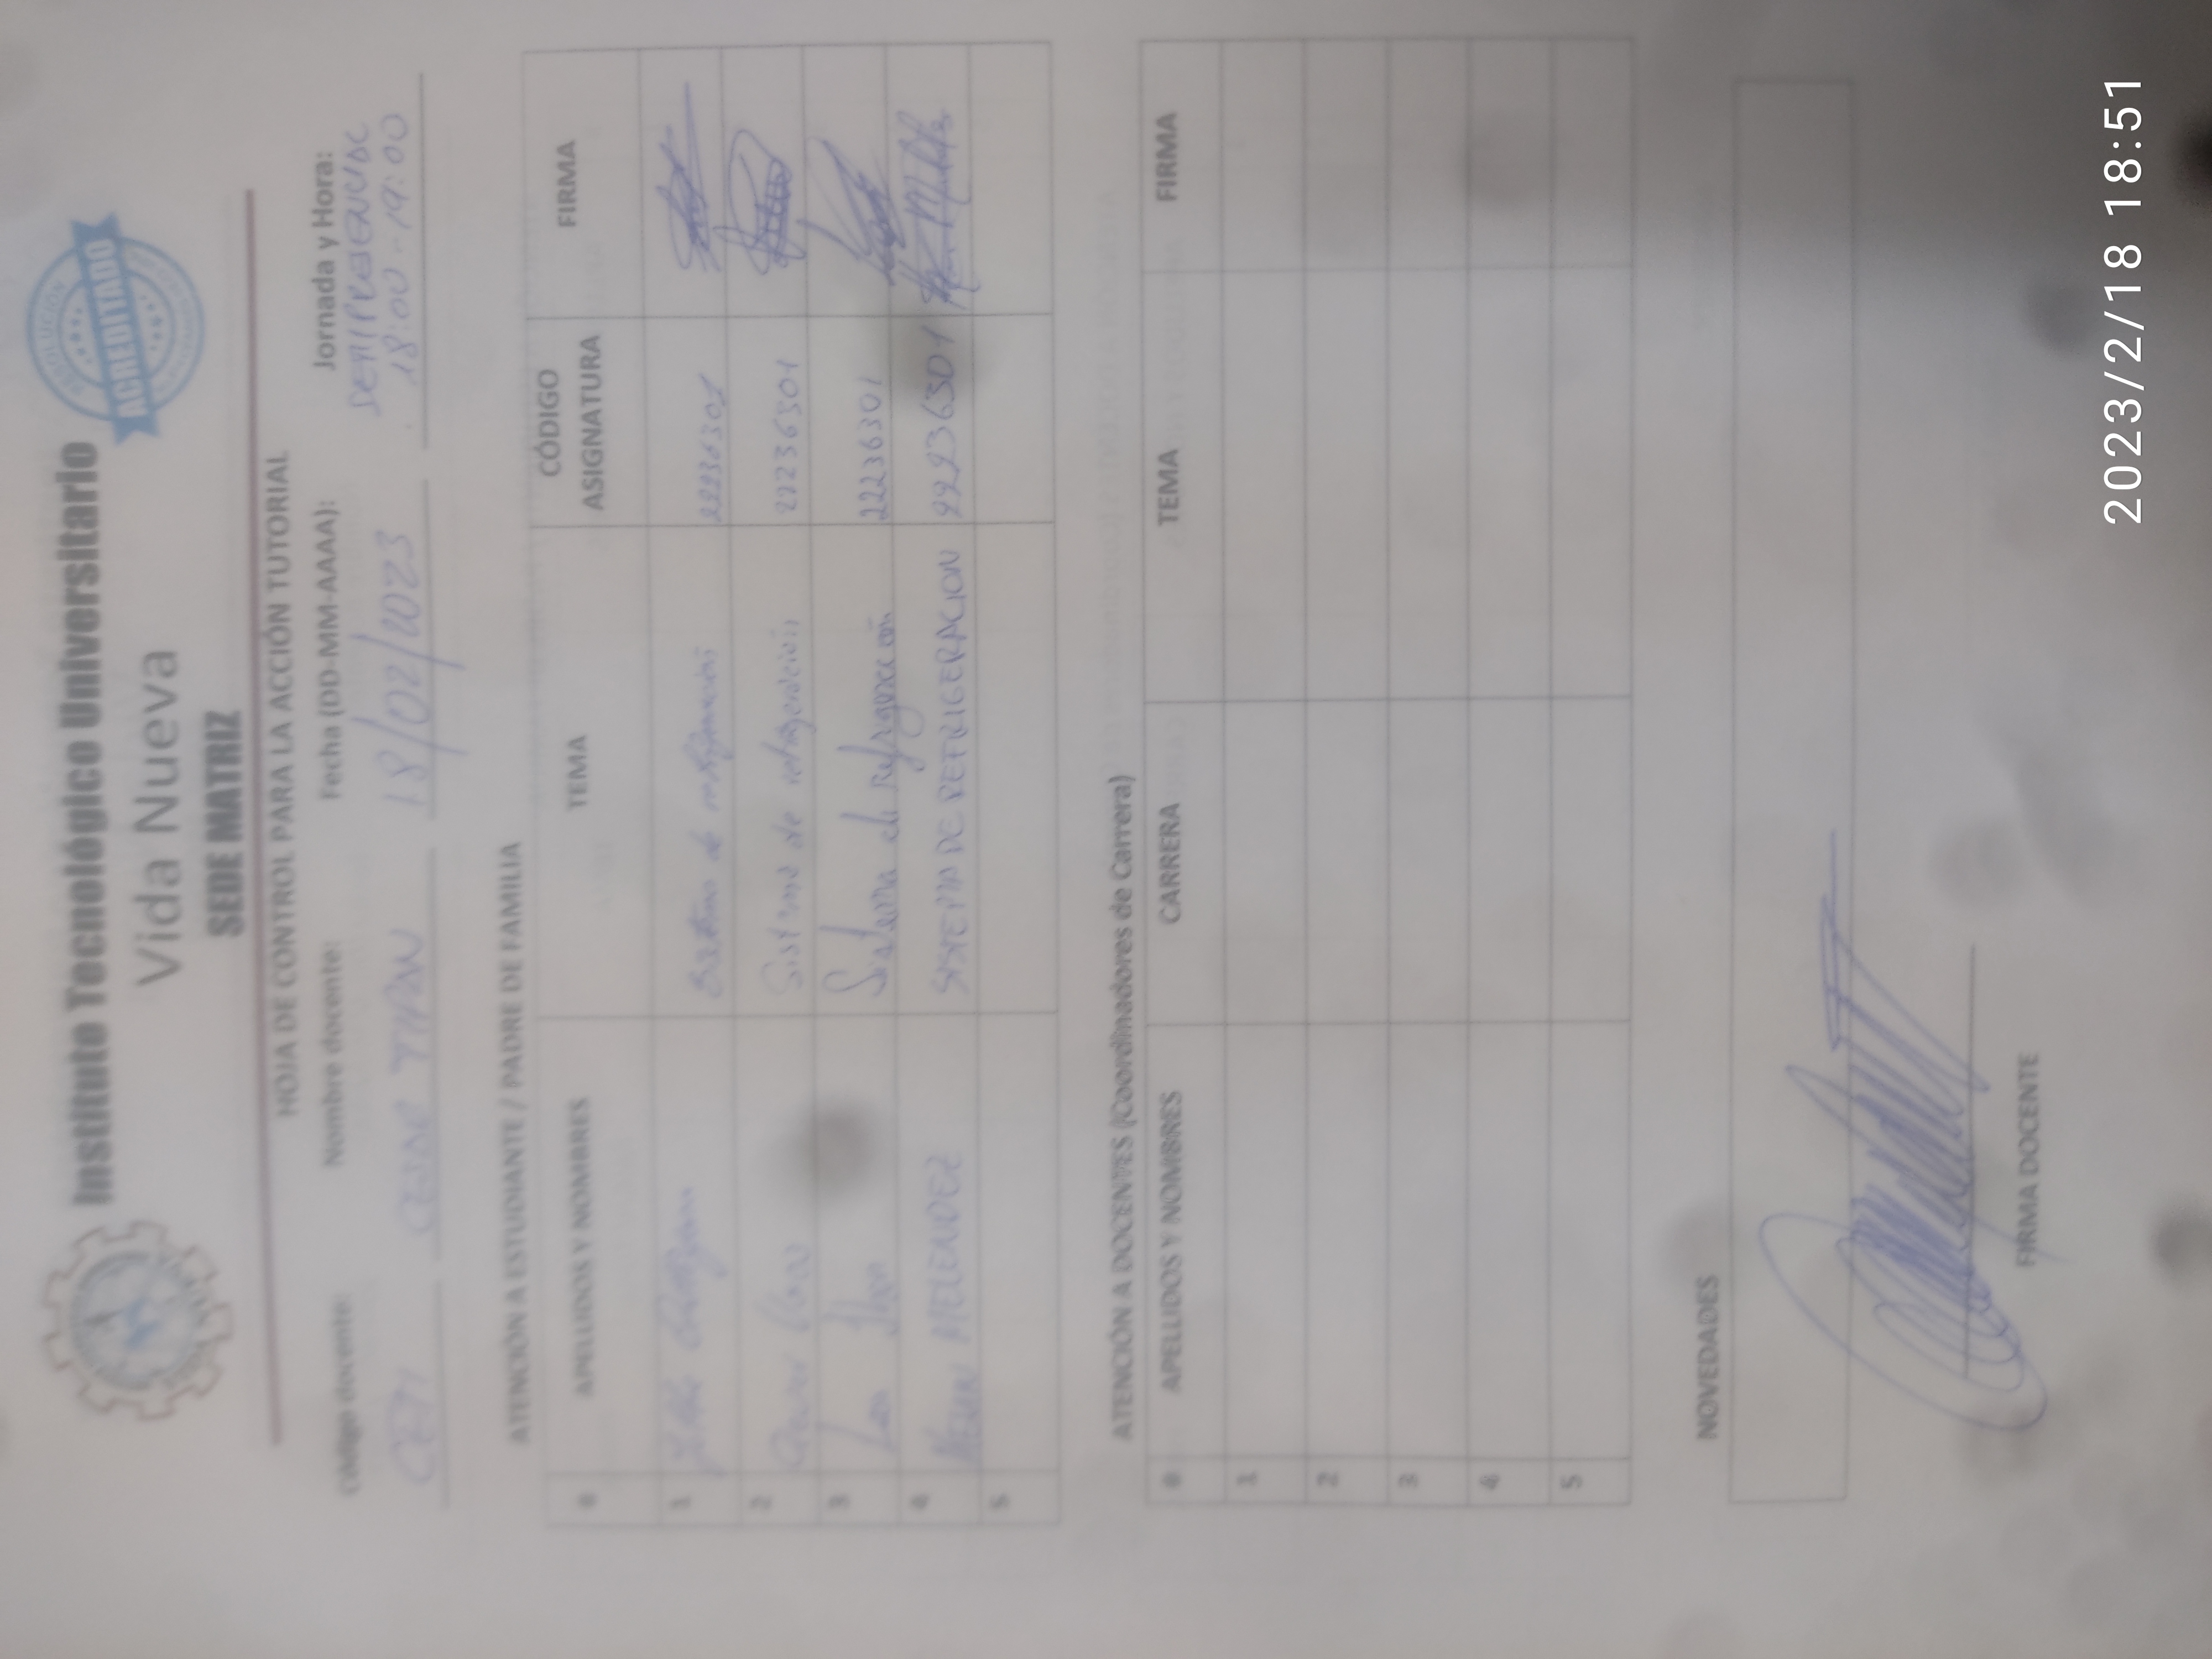 Instituto Tecnológico Universitario
Vida Nueva
SEDE MATRIZ
RESOLUCIÓN
ACREDITADO
HOJA DE CONTROL PARA LA ACCIÓN TUTORIAL
Código docente: Nombre docente: Fecha (DD-MM-AAAA): Jornada y Hora:
SEMIPRESENCIAL
CESAR TIPAN 18/02/2023 18:00-19:00
ATENCIÓN A ESTUDIANTE / PADRE DE FAMILIA
# APELLIDOS Y NOMBRES TEMA CÓDIGO ASIGNATURA FIRMA
1 Sistema de refrigeración 22236301
2 Sistema de refrigeración 22236301
3 Sistema de Refrigeración 22236301
4 KEVIN MELENDEZ SISTEMA DE REFRIGERACION 22236301
5
ATENCIÓN A DOCENTES (Coordinadores de Carrera)
# APELLIDOS Y NOMBRES CARRERA TEMA FIRMA
1
2
3
4
5
NOVEDADES
FIRMA DOCENTE
2023/2/18 18:51